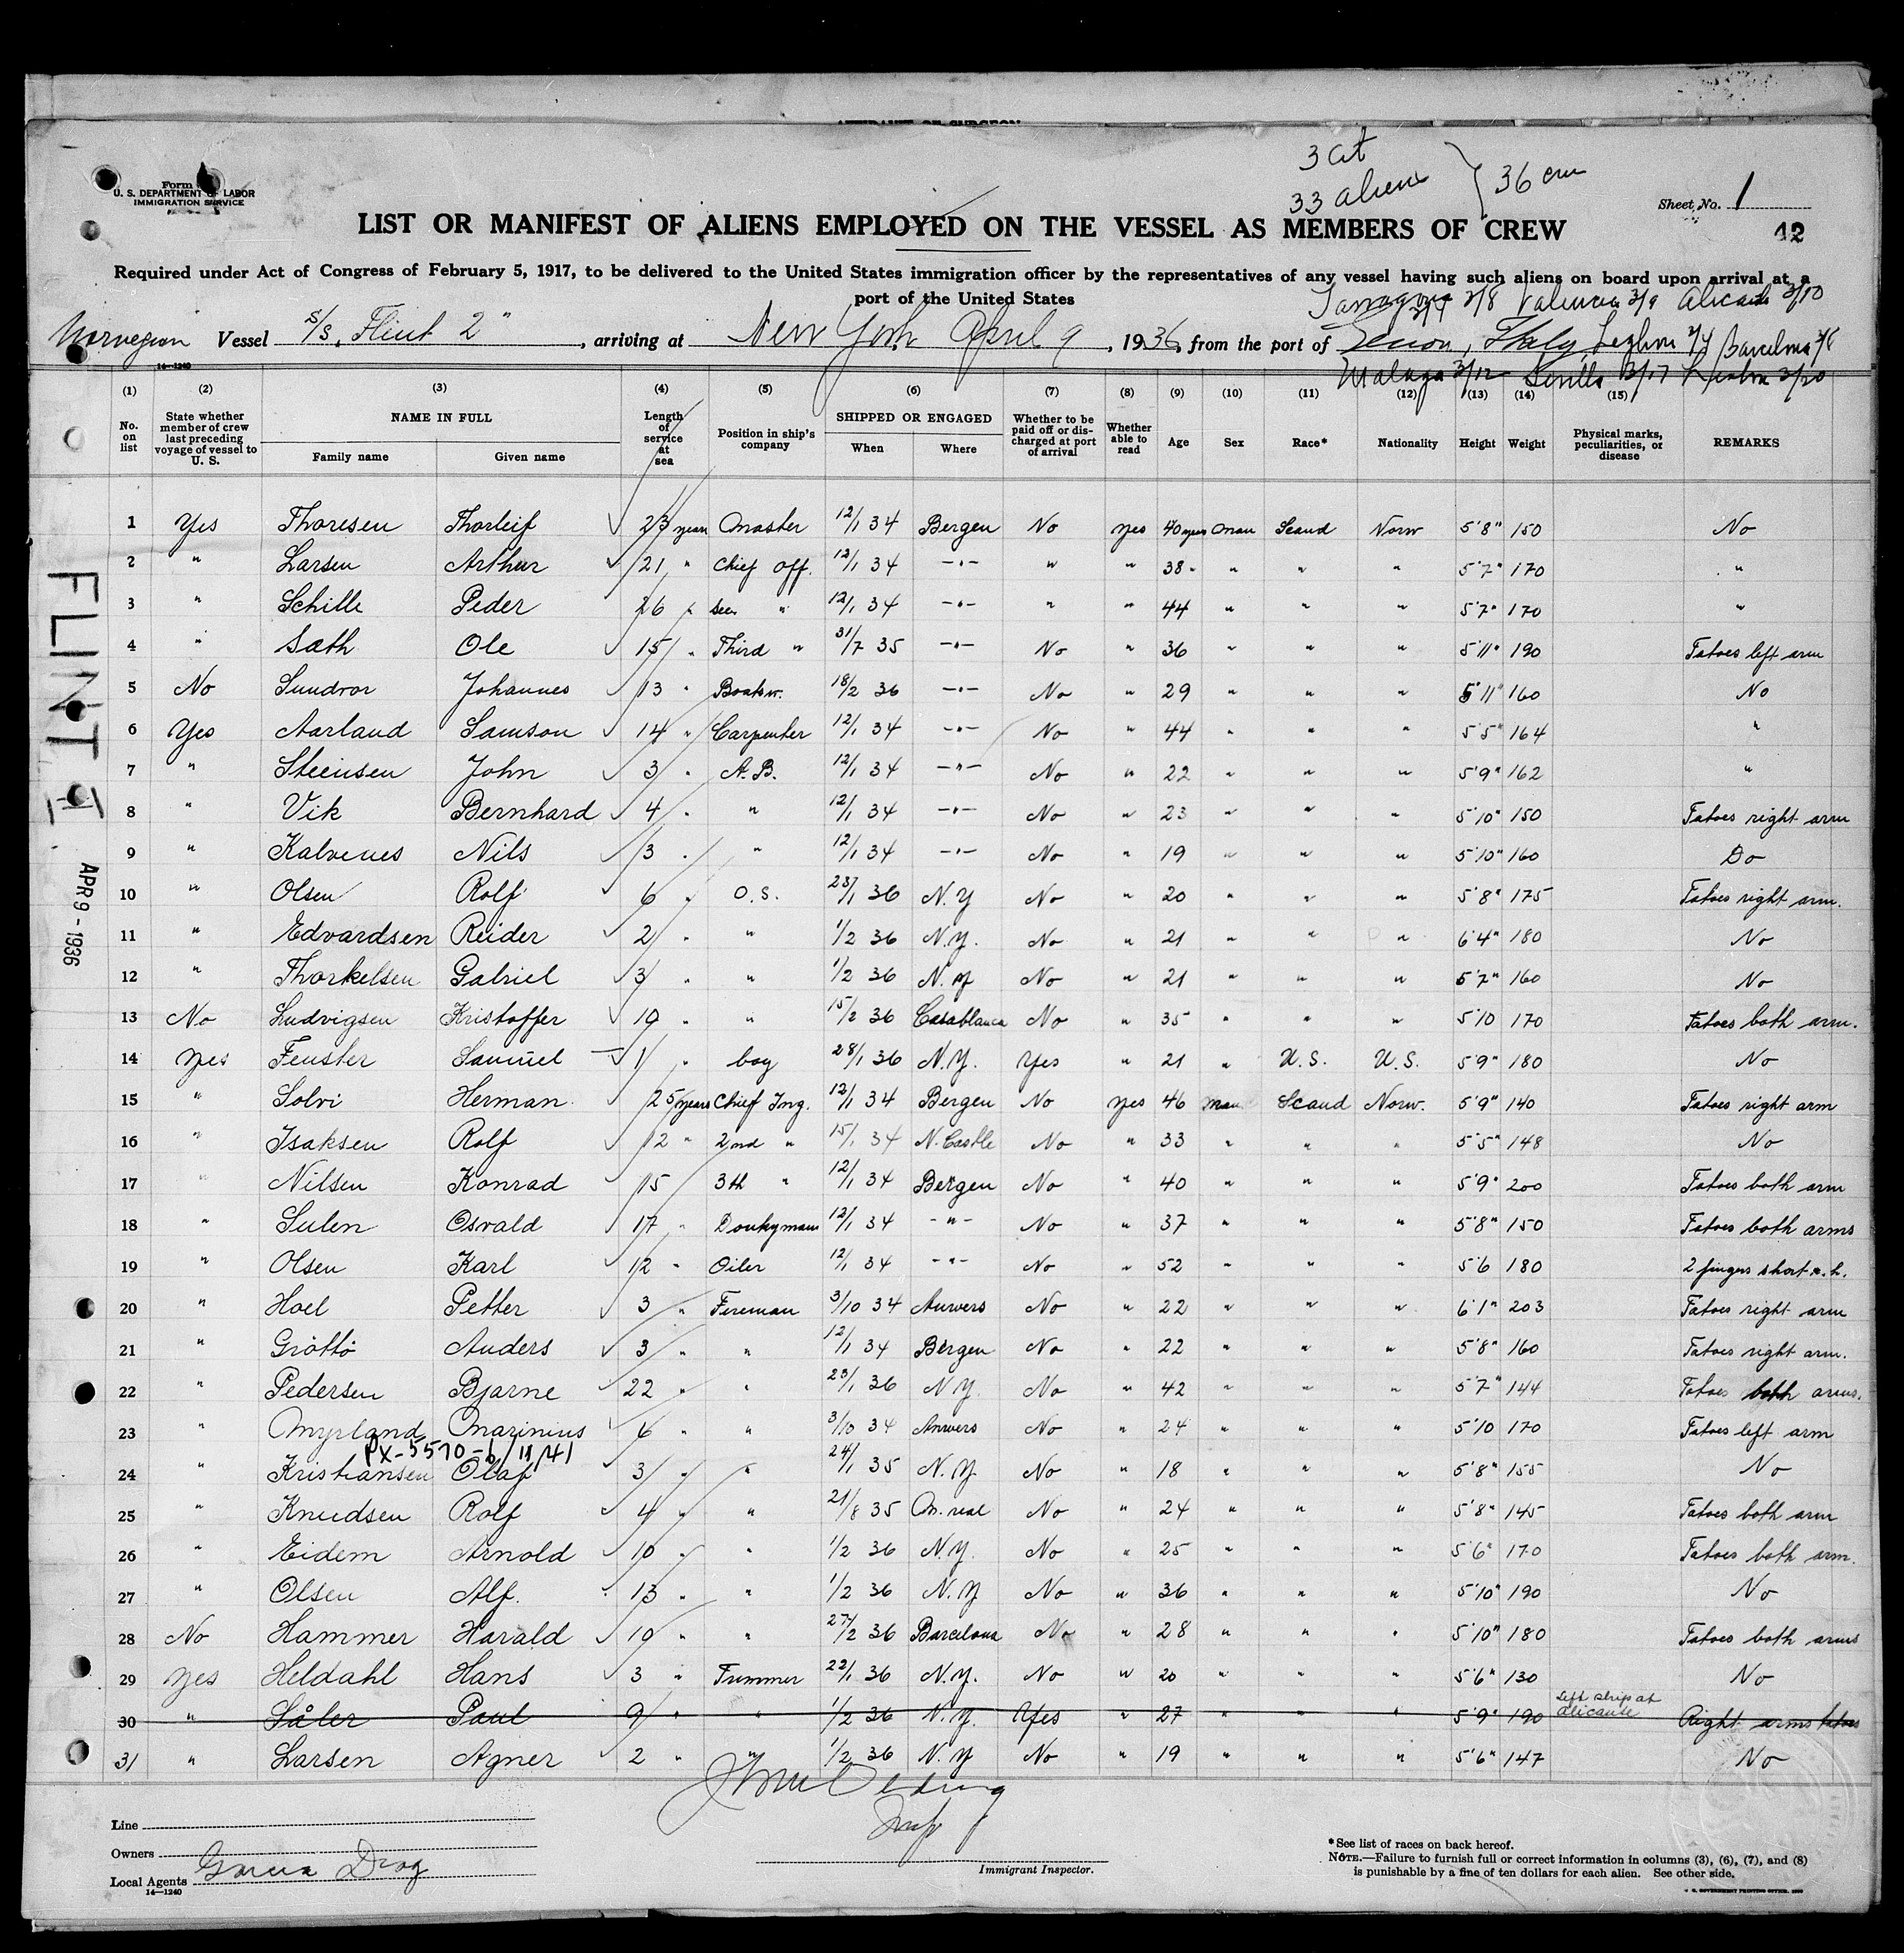 AFFIDAVIT OF SURGEON
3 cit
33 aliens } 36 crew
Form
U. S. DEPARTMENT OF LABOR
IMMIGRATION SERVICE
Sheet No. 1
42
LIST OR MANIFEST OF ALIENS EMPLOYED ON THE VESSEL AS MEMBERS OF CREW
Required under Act of Congress of February 5, 1917, to be delivered to the United States immigration officer by the representatives of any vessel having such aliens on board upon arrival at a
port of the United States
Tarragona 3/8 Valencia 3/9 Alicante 3/10
Norwegian Vessel S/S. Flint 2", arriving at New York, April 9, 1936, from the port of Genoa, Italy, Leghorn Barcelona
Malaga 3/12 Sevilla 3/17 Lisbon 3/20
14—1240
(1) (2) (3) (4) (5) (6) (7) (8) (9) (10) (11) (12) (13) (14) (15)
No. on list State whether member of crew last preceding voyage of vessel to U. S. NAME IN FULL Family name Given name Length of service at sea Position in ship's company SHIPPED OR ENGAGED When Where Whether to be paid off or discharged at port of arrival Whether able to read Age Sex Race* Nationality Height Weight Physical marks, peculiarities, or disease REMARKS
1 Yes Thoresen Thorleif 23 years Master 12/1 34 Bergen No yes 40 years man Scand Norw 5'8" 150 No
2 " Larsen Arthur 21 " Chief Off. 12/1 34 -"- " " 38 " " " " 5'7" 170 "
3 " Schille Peder 26 " Sec. " 12/1 34 -"- " " 44 " " " 5'7" 170 "
4 " Sath Ole 15 " Third " 31/7 35 -"- No " 36 " " " 5'11" 190 Tatoes left arm
5 No Sundvor Johannes 13 " Boatsw. 18/2 36 -"- No " 29 " " " 5'11" 160 No
6 Yes Aarland Samson 14 " Carpenter 12/1 34 -"- No " 44 " " " 5'5" 164 "
7 " Steinsen John 3 " A.B. 12/1 34 -"- No " 22 " " " 5'9" 162 "
8 " Vik Bernhard 4 " " 12/1 34 -"- No " 23 " " " 5'10" 150 Tatoes right arm
9 " Kalvenes Nils 3 " " 12/1 34 -"- No " 19 " " " 5'10" 160 Do
10 " Olsen Rolf 6 " O.S. 23/1 36 N.Y No " 20 " " " 5'8" 175 Tatoes right arm.
11 " Edvardsen Reider 2 " " 1/2 36 N.Y. No " 21 " " " 6'4" 180 No
12 " Thorkelsen Gabriel 3 " " 1/2 36 N.Y No " 21 " " " 5'7" 160 No
13 No Ludvigsen Kristoffer 19 " " 15/2 36 Casablanca No " 35 " " " 5'10 170 Tatoes both arm.
14 Yes Fenster Samuel 1 " boy 28/1 36 N.Y. Yes " 21 " U.S. U.S. 5'9" 180 No
15 " Solvi Herman 25 years Chief Ing. 12/1 34 Bergen No yes 46 man Scand Norw. 5'9" 140 Tatoes right arm
16 " Isaksen Rolf 12 " 2nd " 15/1 34 N. Castle No " 33 " " " 5'5" 148 No
17 " Nilsen Konrad 15 3th " 12/1 34 Bergen No " 40 " " " 5'9" 200 Tatoes both arm
18 " Sulen Osvald 17 " Donkyman 12/1 34 -"- No " 37 " " " 5'8" 150 Tatoes both arms
19 " Olsen Karl 12 " Oiler 12/1 34 -"- No " 52 " " " 5'6 180 2 fingers short r. h.
20 " Hoel Petter 3 " Fireman 3/10 34 Anvers No " 22 " " " 6'1" 203 Tatoes right arm
21 " Grötto Anders 3 " " 12/1 34 Bergen No " 22 " " " 5'8" 160 Tatoes right arm.
22 " Pedersen Bjarne 22 " " 23/1 36 N.Y. No " 42 " " " 5'7" 144 Tatoes both arms.
23 " Myrland Marinius 6 " " 3/10 34 Anvers No " 24 " " " 5'10 170 Tatoes left arm
PX-5570-6/11/41
24 " Kristiansen Olaf 3 " " 24/1 35 N.Y. No " 18 " " " 5'8" 155 No
25 " Knudsen Rolf 4 " " 21/8 35 M.real No " 24 " " " 5'8" 145 Tatoes both arm
26 " Eidem Arnold 10 " " 1/2 36 N.Y. No " 25 " " " 5'6" 170 Tatoes both arm.
27 " Olsen Alf. 13 " " 1/2 36 N.Y No " 36 " " " 5'10" 190 No
28 No Hammer Harald 10 " " 27/2 36 Barcelona No " 28 " " " 5'10" 180 Tatoes both arms
29 Yes Heldahl Hans 3 " Trimmer 22/1 36 N.Y. No " 20 " " " 5'6" 130 No
30 " Såler Paul 9 " " 1/2 36 N.Y. Yes " 27 " " " 5'9" 190 Left ship at Alicante Right arms tatoes
31 " Larsen Agner 2 " " 1/2 36 N.Y No " 19 " " " 5'6" 147 No
FLINT II
APR 9 - 1936
Line
Owners
Local Agents Garcia Diaz
14—1240
Insp
Immigrant Inspector.
*See list of races on back hereof.
NOTE.—Failure to furnish full or correct information in columns (3), (6), (7), and (8)
is punishable by a fine of ten dollars for each alien. See other side.
U. S. GOVERNMENT PRINTING OFFICE